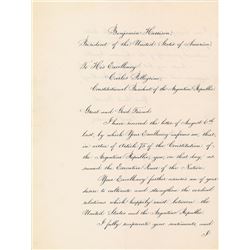 Benjamin Harrison,
President of the United States of America,
To His Excellency
Carlos Pellegrini,
Constitutional President of the Argentine Republic.
Great and Good Friend:
I have received the letter of August 6th
last, by which Your Excellency informs me that,
in virtue of Article 75 of the Constitution of
the Argentine Republic, you, on that day, assumed
the Executive Power of the Nation.
Your Excellency further assures me of your
desire to cultivate and strengthen the cordial
relations which happily exist between the
United States and the Argentine Republic.
I fully reciprocate your sentiments, and
I